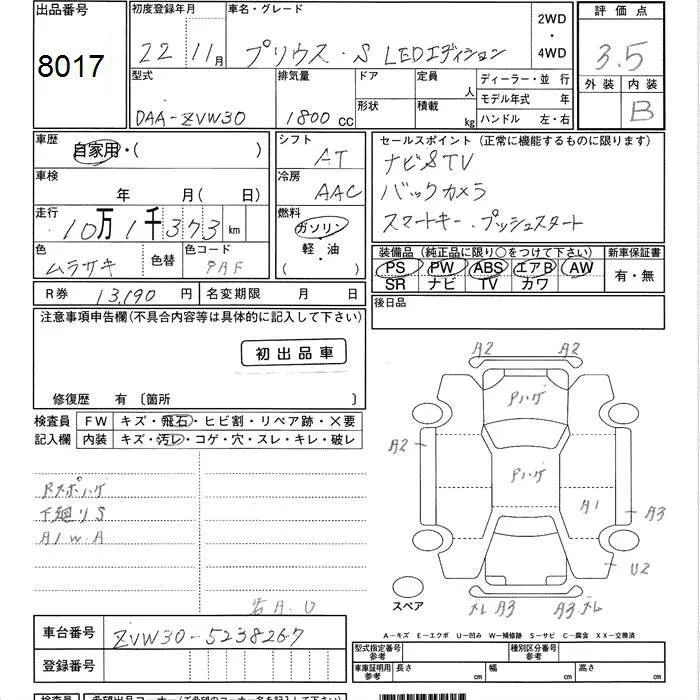 出品番号 初度登録年月 車名・グレード 2WD・4WD 評価点
8017 22年 11月 プリウス・S LEDエディション 3.5
外装 内装 B
型式 排気量 ドア 定員 人 ディーラー・並 行
DAA-ZVW30 1800cc 形状 積載 kg モデル年式 年
ハンドル 左・右
車歴 自家用・( ) シフト AT セールスポイント (正常に機能するものに限ります)
車検 年 月( 日) 冷房 AAC ナビSTV
バックカメラ
走行 10万1千373km 燃料 ガソリン・軽・油 ( ) スマートキー・プッシュスタート
色 ムラサキ 色替 色コード 装備品 (純正品に限り○をつけて下さい) 新車保証書
PS PW ABS エアB AW 有・無
SR ナビ TV カワ
R券 13,190円 名変期限 月 日 後日品
注意事項申告欄(不具合内容等は具体的に記入して下さい)
初出品車
修復歴 有 〔箇所 〕
検査員 FW キズ・飛石・ヒビ割・リペア跡・×要
記入欄 内装 キズ・汚レ・コゲ・穴・スレ・キレ・破レ
Rスポハゲ
下廻りS
AIW.A
A2 A2
Pハゲ
A2
Pハゲ
A1 A3
U2
A3 A3
スペア
A―キズ E―エクボ U―凹み W―補修跡 S―サビ C―腐食 XX―交換済
車台番号 ZVW30-5238267
登録番号
型式指定番号 参考 種別区分番号 参考
車庫証明用 参考 長さ 幅 高さ
cm cm cm
検査員 希望出品コーナー(ご希望のコーナー名を記入して下さい)